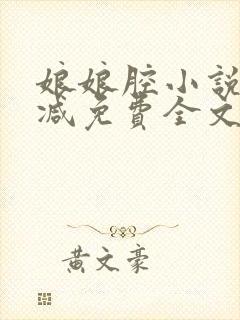 娘娘腔小說
減免費全文
黃文豪